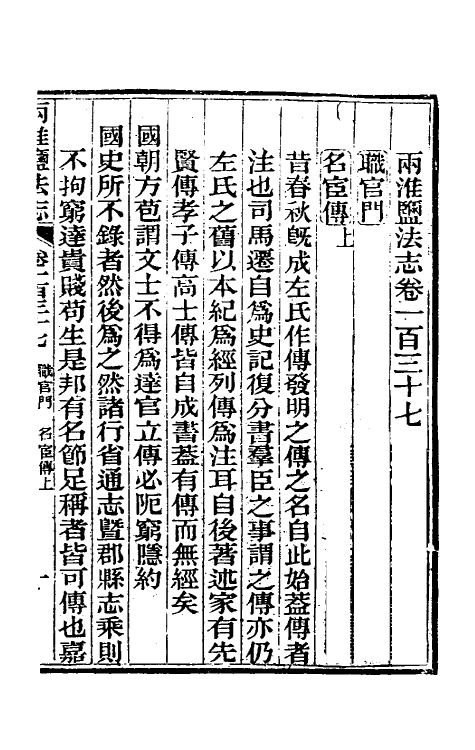 兩淮鹽法志卷一百三十七
職官門
名宦傳上
昔春秋旣成左氏作傳發明之傳之名自此始蓋傳者
注也司馬遷自爲史記復分書羣臣之事謂之傳亦仍
左氏之舊以本紀爲經列傳爲注耳自後著述家有先
賢傳孝子傳高士傳皆自成書蓋有傳而無經矣
國朝方苞謂文士不得爲達官立傳必阨窮隱約
國史所不錄者然後爲之然諸行省通志曁郡縣志乘則
不拘窮達貴賤苟生是邦有名節足稱者皆可傳也嘉
兩淮鹽法志 卷一百三十七 職官門 名宦傳上 一